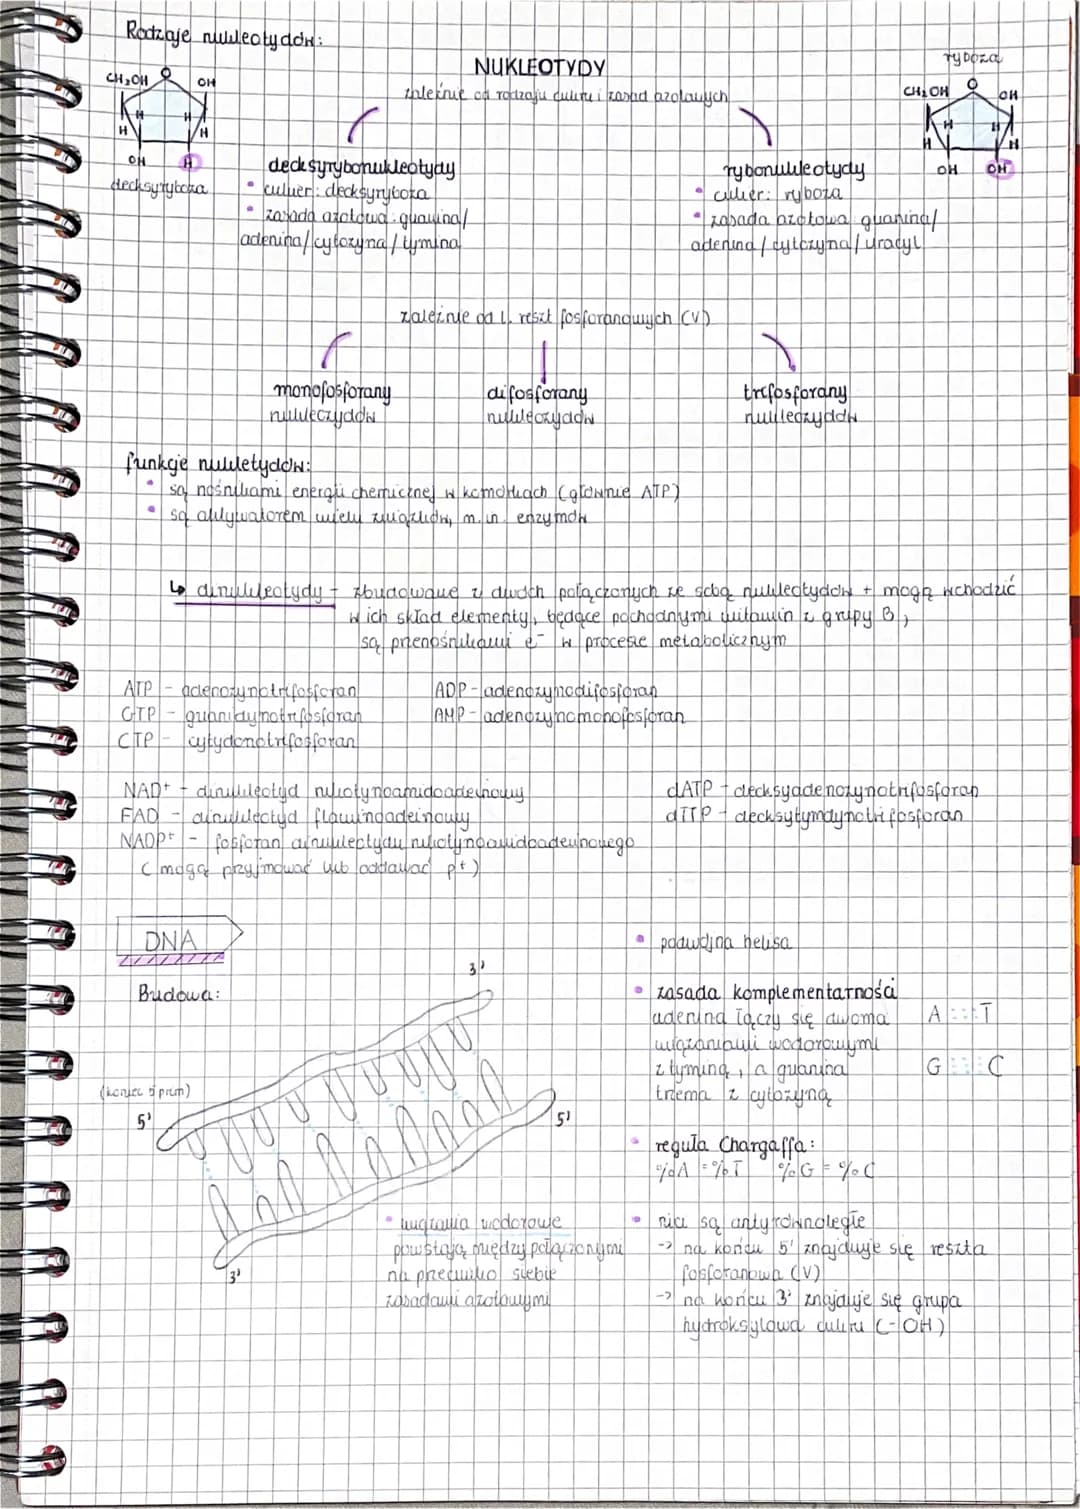 Rodzaje nukleotydów:
NUKLEOTYDY
zależnie od rodzaju cukru i zasad azotowych
CH₂OH O OH
H H
H H
OH H
deoksyryboza
ryboza
CH₂OH O OH
H H
H H
OH OH
deoksyrybonukleotydy
• cukier: deoksyryboza
• zasada azotowa: guanina/
adenina/cytozyna/tymina
rybonukleotydy
• cukier: ryboza
• zasada azotowa: guanina/
adenina/cytozyna/uracyl
zależnie od l. reszt fosforanowych (V)
monofosforany
nukleozydów
difosforany
nukleozydów
trifosforany
nukleozydów
funkcje nukletydów:
• są nośnikami energii chemicznej w komórkach (głównie ATP)
• są aktywatorem wielu związków, m.in. enzymów
↳ dinukleotydy - zbudowane z dwóch połączonych ze sobą nukleotydów + mogą wchodzić
w ich skład elementy, będące pochodnymi witamin z grupy B,
są przenośnikami e⁻ w procesie metabolicznym
ATP - adenozynotrifosforan
GTP - guanidynotrifosforan
CTP - cytydonotrifosforan
ADP - adenozynodifosforan
AMP - adenozynomonofosforan
NAD⁺ - dinukleotyd nikotynoamidoadeinowy
FAD - dinukleotyd flawinoadeinowy
NADP⁺ - fosforan dinukleotydu nikotynoamidoadeninowego
(mogą przyjmować lub oddawać p⁺)
dATP - deoksyadenozynotrifosforan
dTTP - deoksytymdynotrifosforan
DNA
Budowa:
3'
(koniec 5 prim)
5'
5'
3'
• wiązania wodorowe
powstają między połączonymi
na przeciwko siebie
zasadami azotowymi
• podwójna helisa
• zasada komplementarności
adenina łączy się dwoma
wiązaniami wodorowymi
z tyminą, a guanina
trzema z cytozyną
A T
G C
• reguła Chargaffa:
%A = %T %G = %C
• nici są antyrównoległe
-> na końcu 5' znajduje się reszta
fosforanowa (V)
-> na końcu 3' znajduje się grupa
hydroksylowa cukru (-OH)